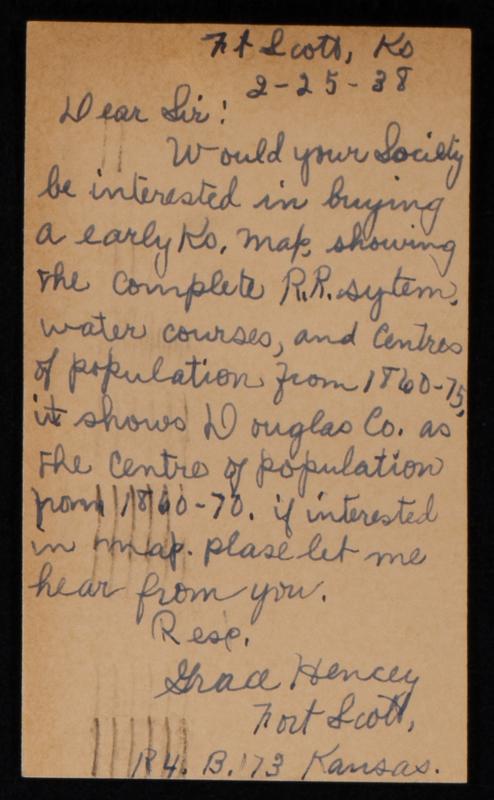 Ft Scott, Ks
2-25-38
Dear Sir!
Would your Society
be interested in buying
a early Ks. map, showing
the complete R.R. sytem,
water courses, and Centres
of population from 1860-75,
it shows Douglas Co. as
the Centre of population
from 1860-70. if interested
in map. plase let me
hear from you.
Resp.
Grace Hencey
Fort Scott,
R4. B.173 Kansas.